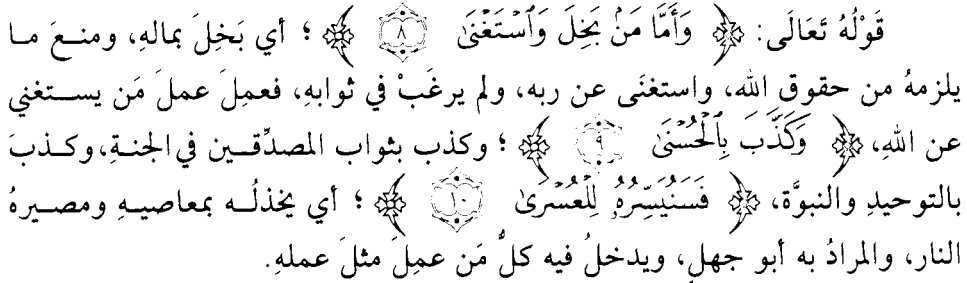 قَوْلُهُ تَعَالَى: ﴿ وَأَمَّا مَنْ بَخِلَ وَاسْتَغْنَىٰ ٨ ﴾ ؛ أي بَخِلَ بمالهِ، ومنعَ ما
يلزمهُ من حقوقِ الله، واستغنَى عن ربه، ولم يرغَبْ في ثوابهِ، فعمِلَ عملَ مَن يستغني
عن اللهِ، ﴿ وَكَذَّبَ بِالْحُسْنَىٰ ٩ ﴾ ؛ وكذب بثواب المصدِّقين في الجنةِ، وكذبَ
بالتوحيدِ والنبوَّة، ﴿ فَسَنُيَسِّرُهُ لِلْعُسْرَىٰ ١٠ ﴾ ؛ أي يخذلُه بمعاصيهِ ومصيرهُ
النار، والمرادُ به أبو جهلٍ، ويدخلُ فيه كلُّ مَن عمِلَ مثلَ عملهِ.